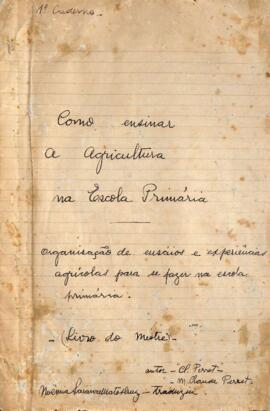 1º Caderno.
Como ensinar
A Agricultura
na Escola Primária
Organisação de ensáios e experiências
agrícolas para se fazer na escola
primária.
- (Livro do Mestre) -
autor - Ch. Perret -
M. Claude Perret
Noêmia Saraiva Matos Cruz - traduziu